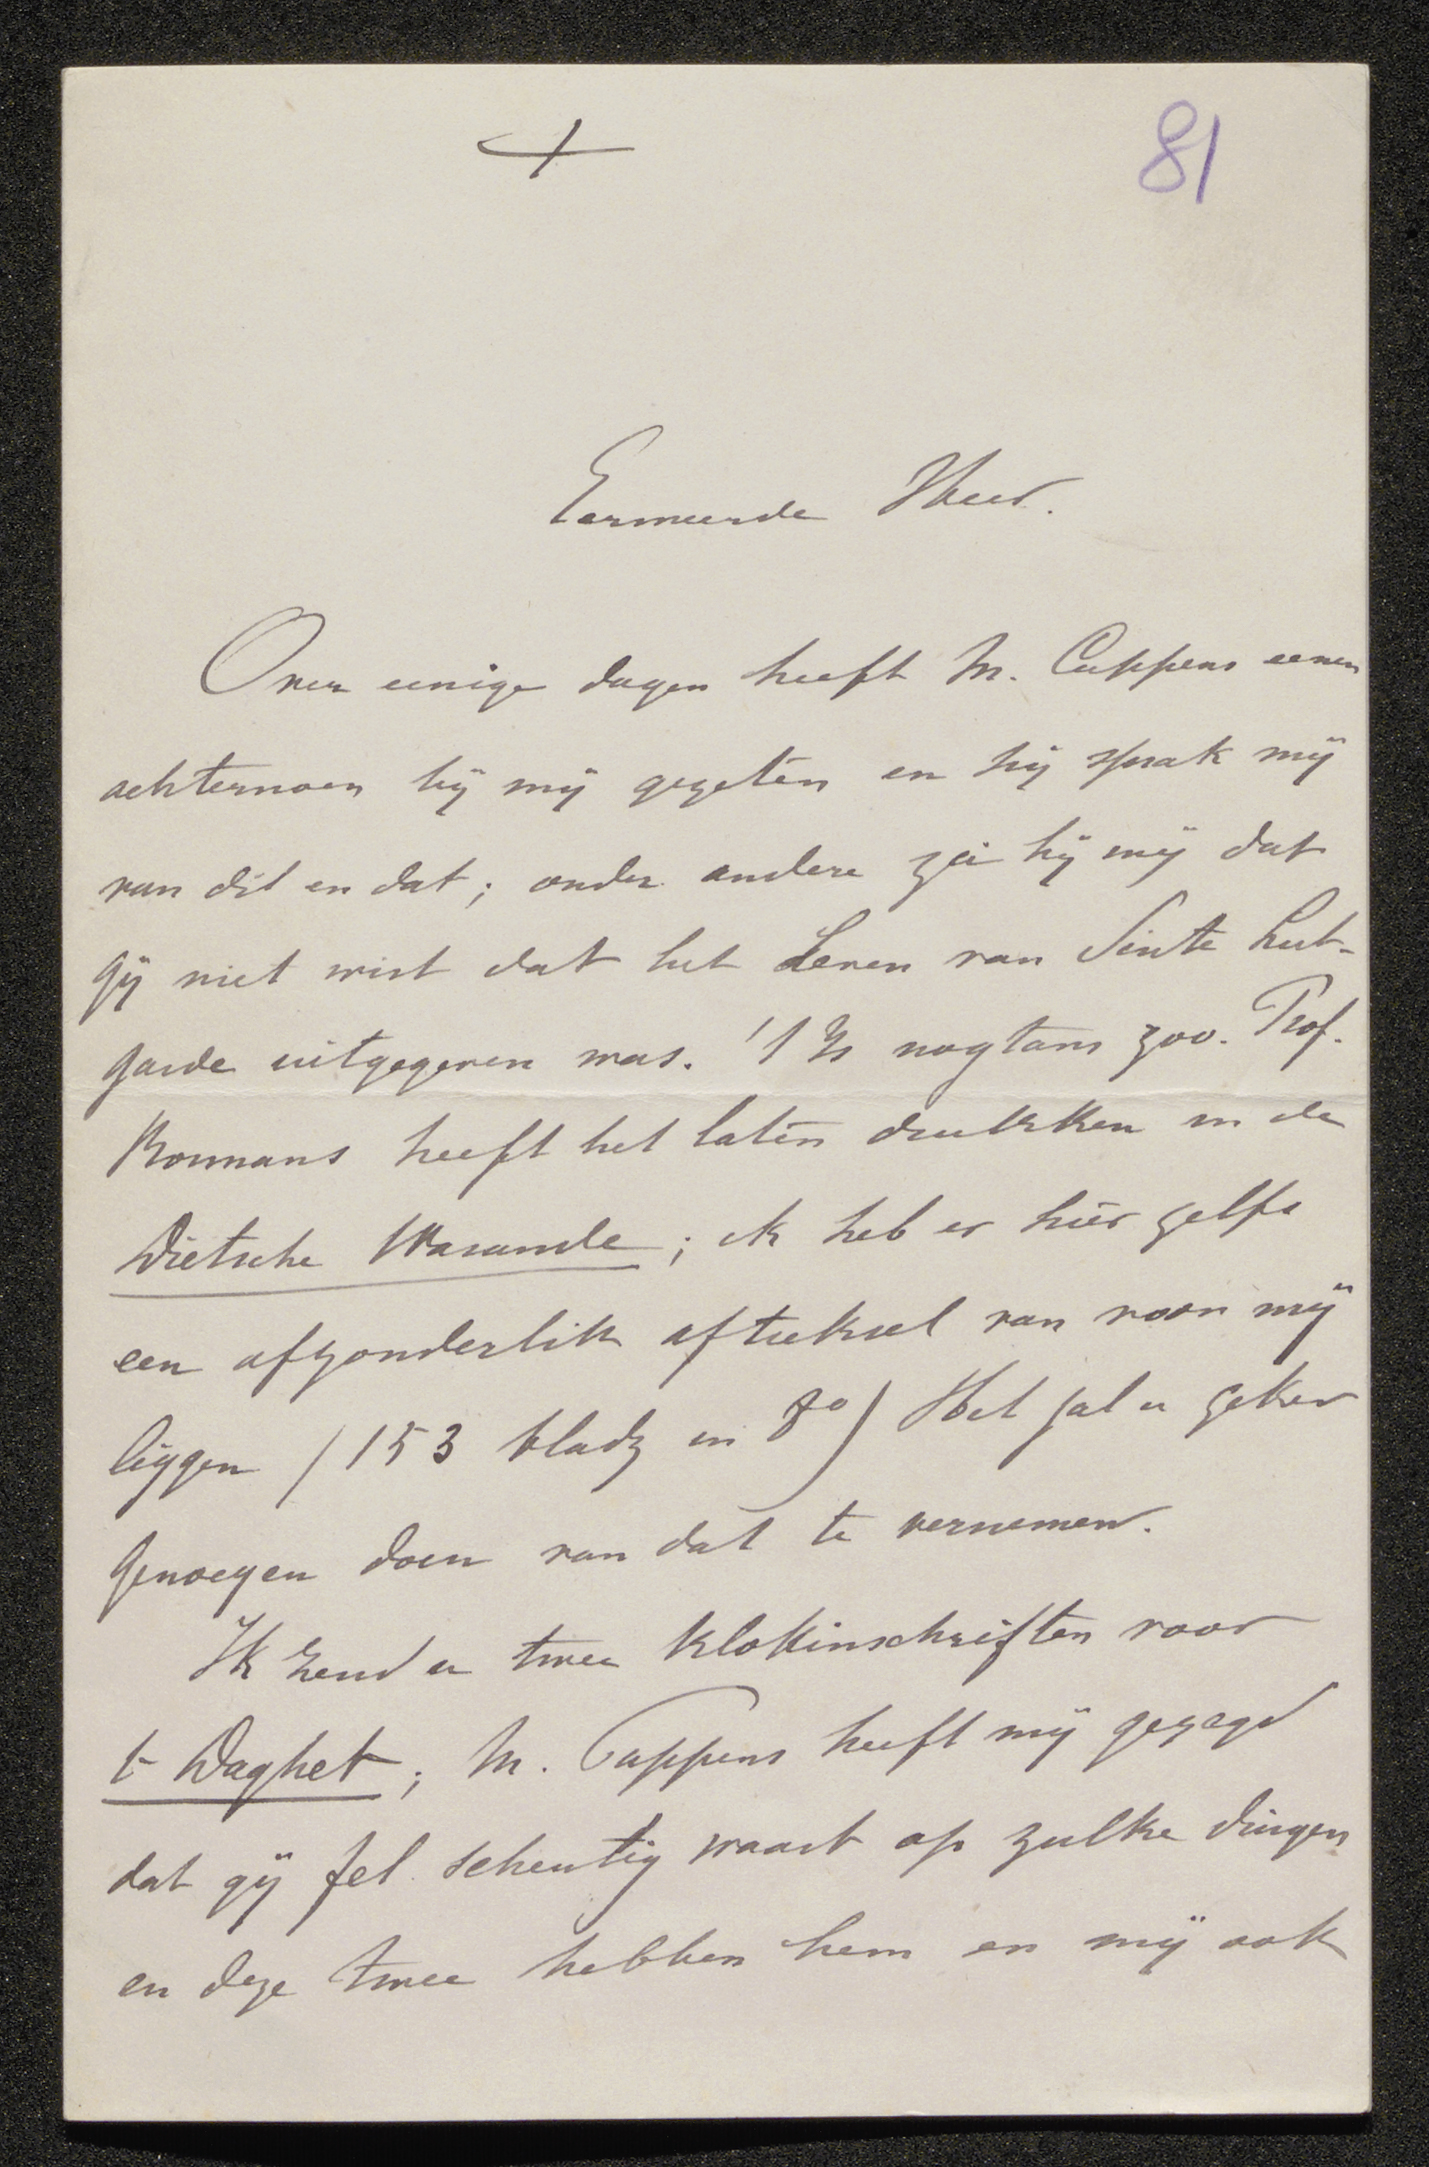 +
81
Eerweerde Heer.
Over eenige dagen heeft M. Cuppens eenen
achternoen bij mij gezeten en hij sprak mij
van dit en dat; onder andere zei hij mij dat
gij niet wist dat het Leven van Sinte Lut-
garde uitgegeven was. 't Is nogtans zoo. Prof.
Bormans heeft het laten drukken in de
Dietsche Warande; ik heb er hier zelfs
een afzonderlik aftreksel van voor mij
liggen (153 bladz in 8o) Het zal u zeker
genoegen doen van dat te vernemen.
Ik zend u twee klokinschriften voor
t Daghet; M. Cuppens heeft mij gezegd
dat gij fel scheutig waart op zulke dingen
en deze twee hebben hem en mij ook